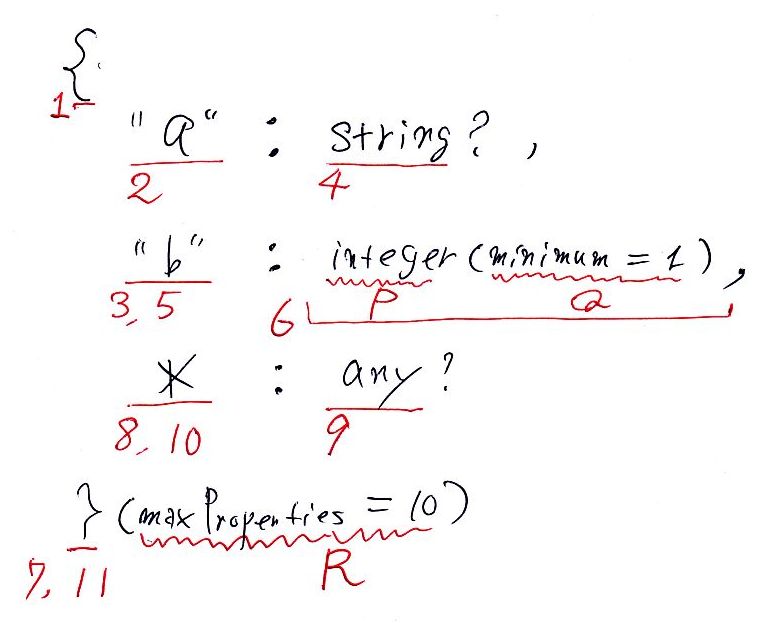 {
1
"a" : string? ,
2 4
"b" : integer (minimum = 1) ,
3, 5 6 P Q
* : any?
8, 10 9
} (maxProperties = 10)
7, 11 R